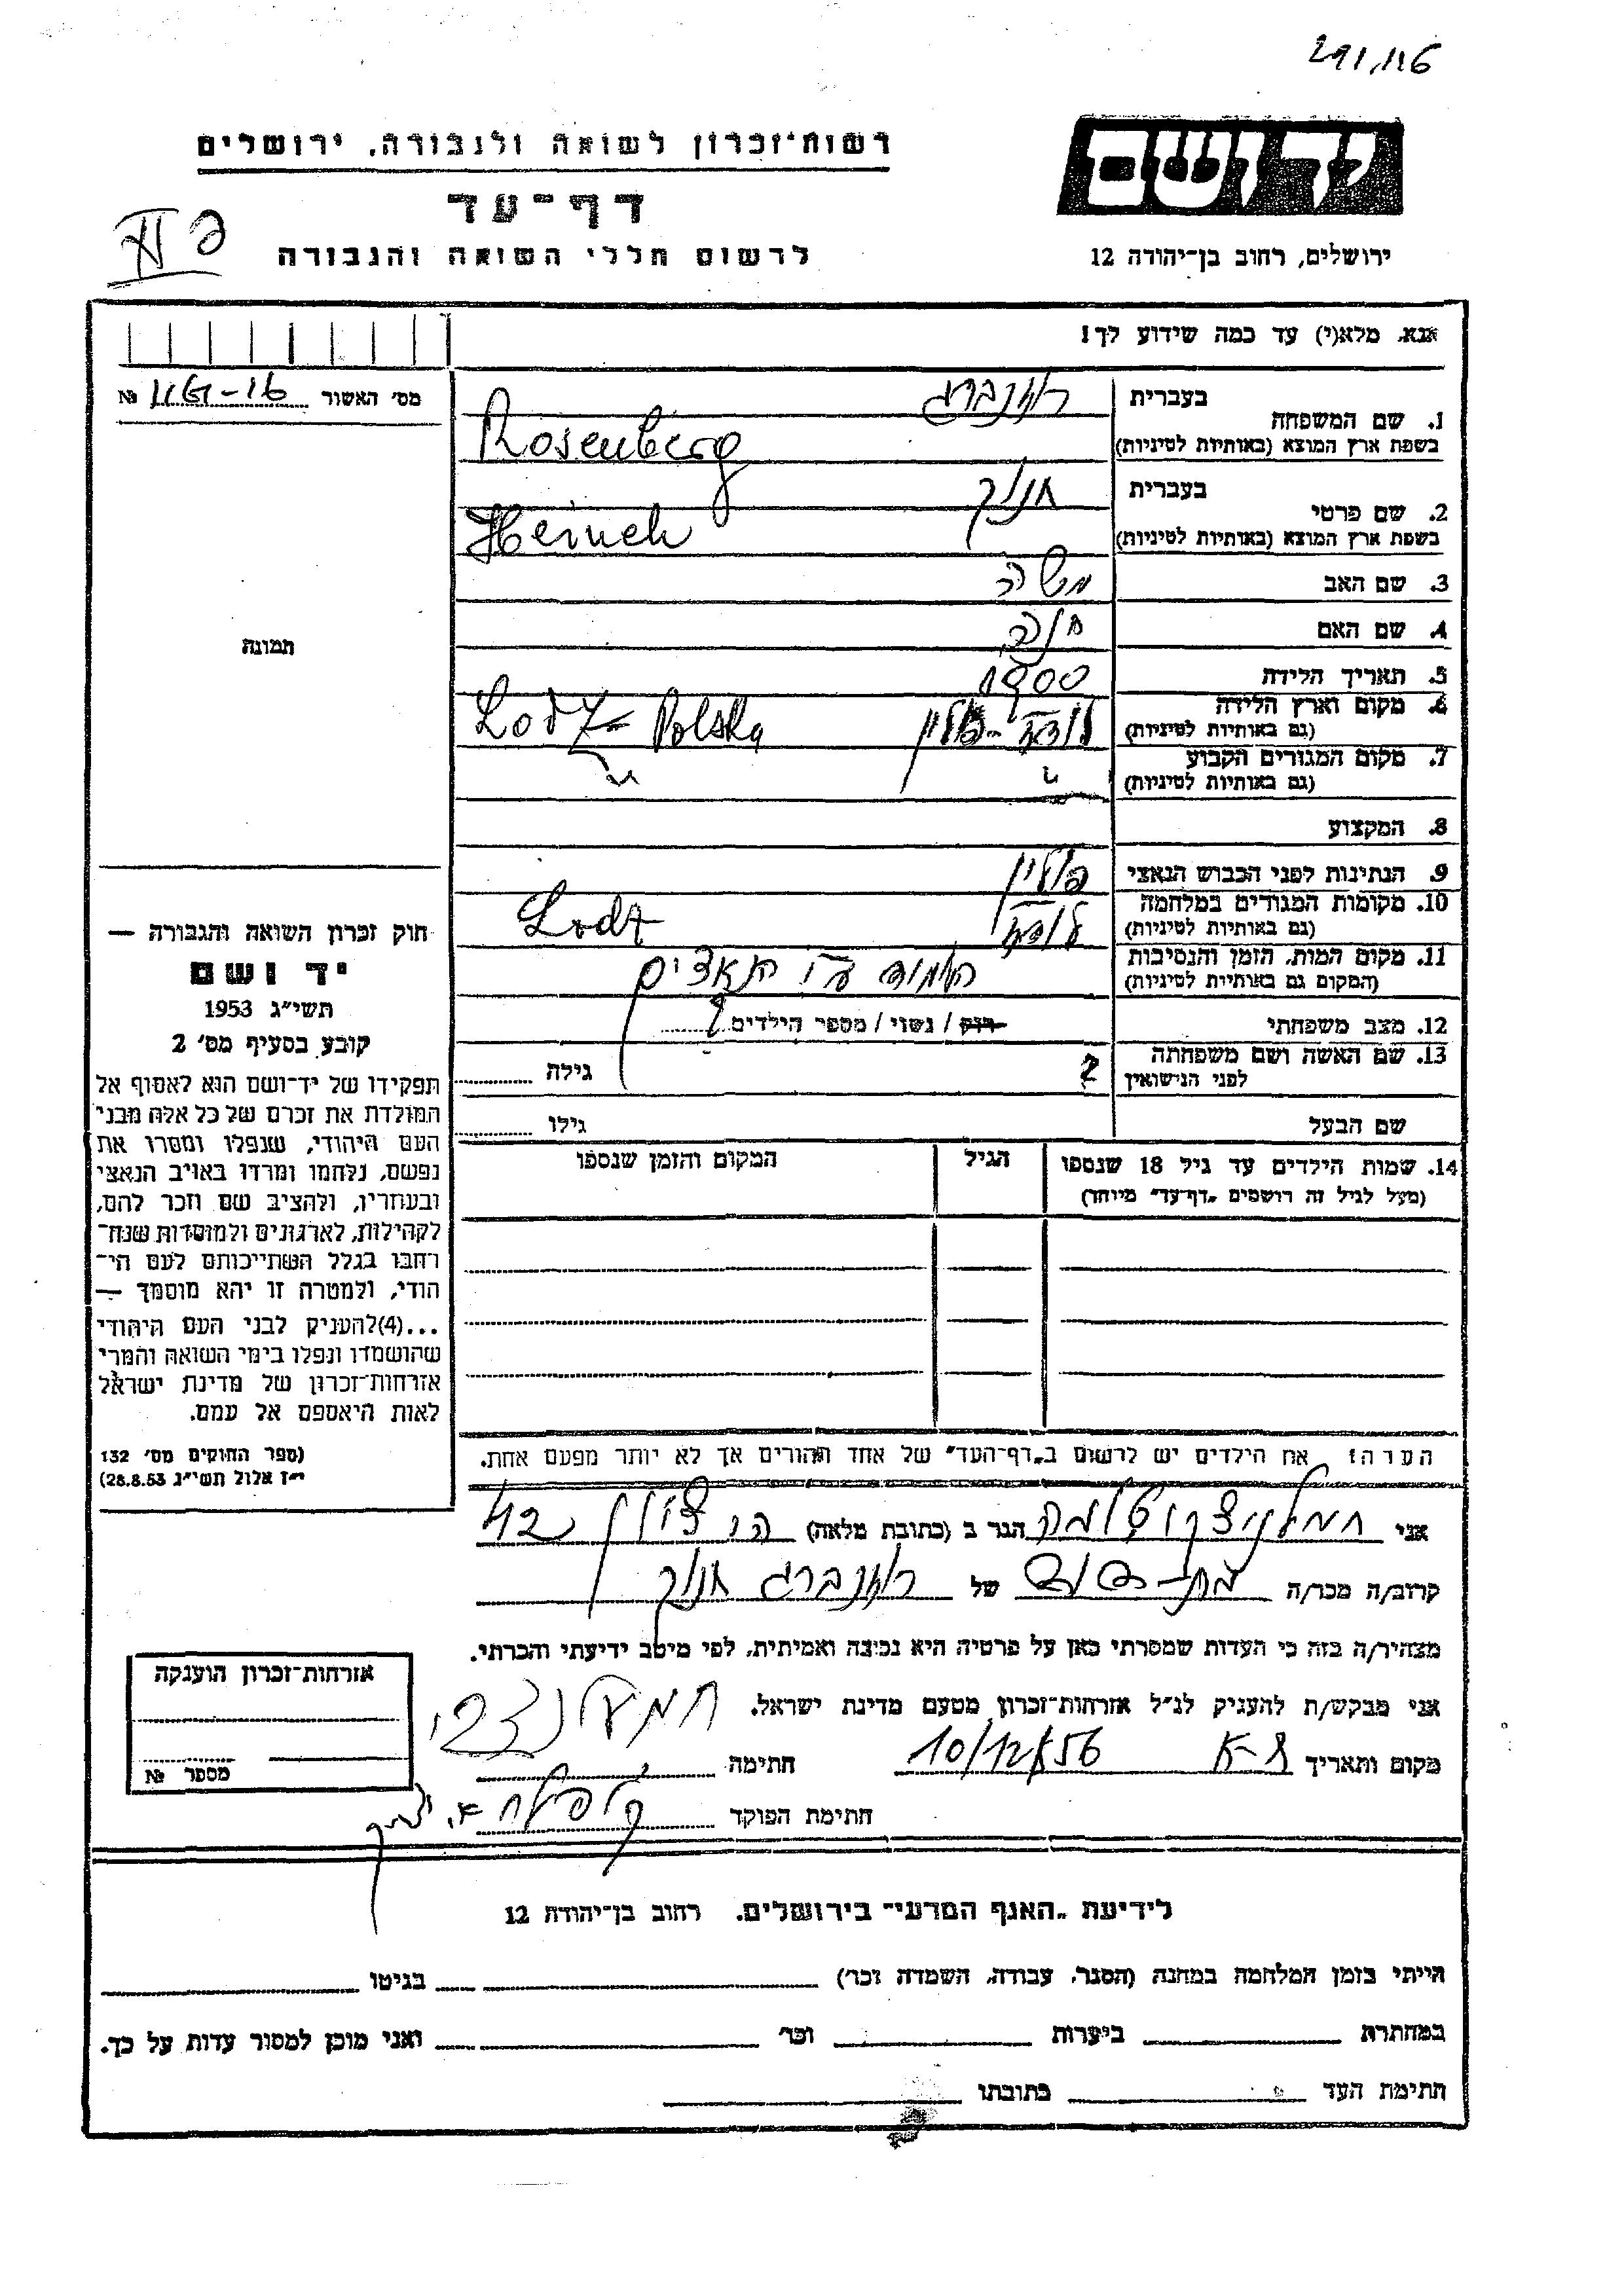 291/116
רשות־זכרון לשואה ולגבורה, ירושלים
דף־עד
לרשום חללי השואה והגבורה
יד ושם
ירושלים, רחוב בן־יהודה 12
אנא, מלא(י) עד כמה שידוע לך!
מס׳ האשור №
בעברית רוזנברג
1. שם המשפחה
בשפת ארץ המוצא (באותיות לטיניות) Rosenberg
בעברית חנוך
2. שם פרטי
בשפת ארץ המוצא (באותיות לטיניות) Heineh
3. שם האב משה
4. שם האם חנה
5. תאריך הלידה 1900
6. מקום וארץ הלידה לודז - פולין Lodz - Polska
(גם באותיות לטיניות)
7. מקום המגורים הקבוע
(גם באותיות לטיניות) " "
8. המקצוע
9. הנתינות לפני הכבוש הנאצי פולין
10. מקומות המגורים במלחמה
(גם באותיות לטיניות) לודז Lodz
11. מקום המות, הזמן והנסיבות
(המקום גם באותיות לטיניות) הושמד ע"י הנאצים
12. מצב משפחתי רוק / נשוי / מספר הילדים ?
13. שם האשה ושם משפחתה
לפני הנישואין ? גילה
שם הבעל גילו
14. שמות הילדים עד גיל 18 שנספו הגיל המקום והזמן שנספו
(מעל לגיל זה רושמים „דף־עד״ מיוחד)
הערה: את הילדים יש לרשום ב„דף־העד״ של אחד ההורים אך לא יותר מפעם אחת.
תמונה
חוק זכרון השואה והגבורה —
יד ושם
תשי״ג 1953
קובע בסעיף מס׳ 2
תפקידו של יד־ושם הוא לאסוף אל
המולדת את זכרם של כל אלה מבני
העם היהודי, שנפלו ומסרו את
נפשם, נלחמו ומרדו באויב הנאצי
ובעוזריו, ולהציב שם וזכר להם,
לקהילות, לארגונים ולמוסדות שנח־
רבו בגלל השתייכותם לעם הי־
הודי, ולמטרה זו יהא מוסמך —
...(4)להעניק לבני העם היהודי
שהושמדו ונפלו בימי השואה והמרי
אזרחות־זכרון של מדינת ישראל
לאות היאספם אל עמם.
(ספר החוקים מס׳ 132
י״ז אלול תשי״ג 28.8.53)
אני הגר ב (כתובת מלאה) 42
קרוב/ה מכר/ה של רוזנברג חנוך
מצהיר/ה בזה כי העדות שמסרתי כאן על פרטיה היא נכונה ואמיתית, לפי מיטב ידיעתי והכרתי.
אני מבקש/ת להעניק לנ״ל אזרחות־זכרון מטעם מדינת ישראל.
מקום ותאריך ת-א 10/12/56 חתימה
חתימת הפוקד
אזרחות־זכרון הוענקה
מספר №
לידיעת „האגף המדעי״ בירושלים, רחוב בן־יהודה 12
הייתי בזמן המלחמה במחנה (הסגר, עבודה, השמדה וכו׳) בגיטו
במחתרת ביערות וכו׳ ואני מוכן למסור עדות על כך.
חתימת העד כתובתו